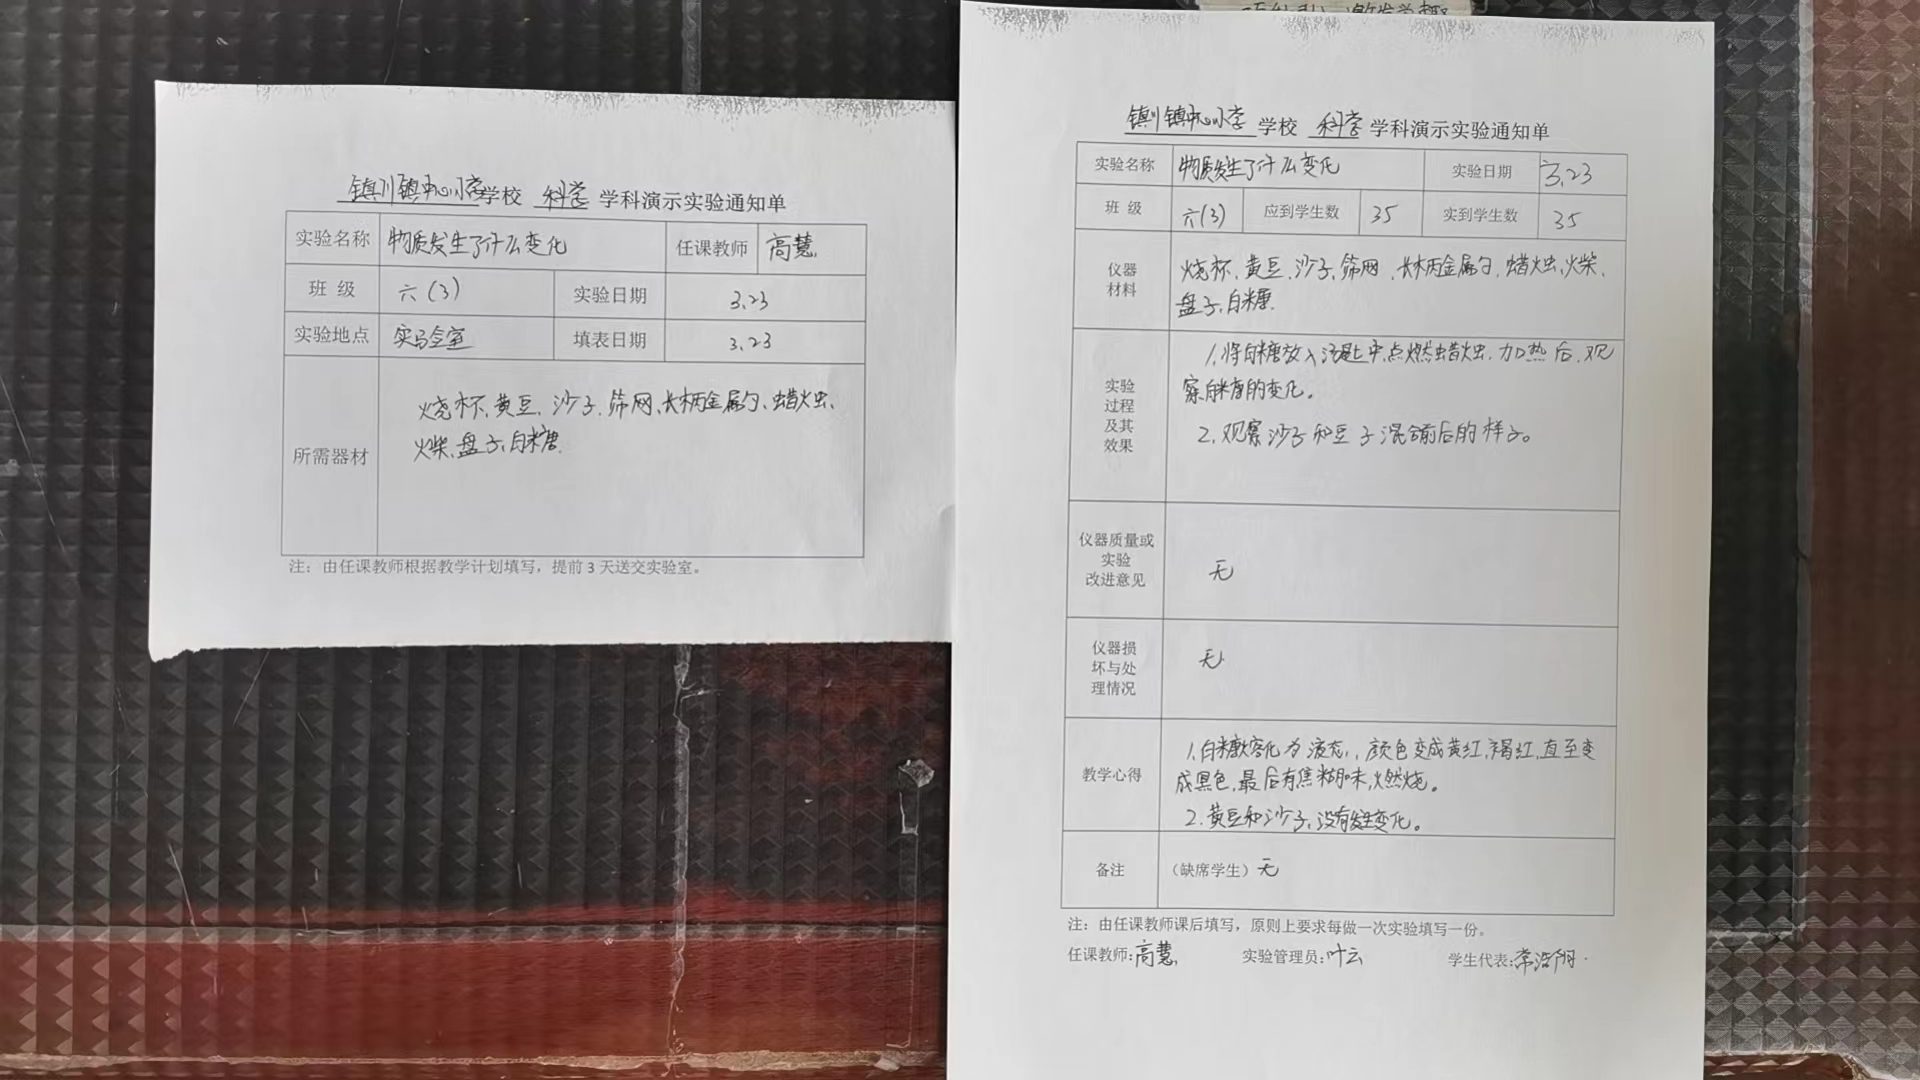 镇川镇中心小学学校 科学 学科演示实验通知单
实验名称 物质发生了什么变化 任课教师 高慧
班 级 六(3) 实验日期 3.23
实验地点 实验室 填表日期 3.23
所需器材
烧杯、黄豆、沙子、筛网、长柄金属勺、蜡烛、
火柴、盘子、白糖.
注：由任课教师根据教学计划填写，提前 3 天送交实验室。
镇川镇中心小学 学校 科学 学科演示实验通知单
实验名称 物质发生了什么变化 实验日期 3.23
班 级 六(3) 应到学生数 35 实到学生数 35
仪器
材料
烧杯、黄豆、沙子、筛网、长柄金属勺、蜡烛、火柴、
盘子、白糖.
实验
过程
及其
效果
1.将白糖放入汤匙中点燃蜡烛.加热后.观
察白糖的变化。
2.观察沙子和豆子混合前后的样子。
仪器质量或
实验
改进意见
无
仪器损
坏与处
理情况
无
教学心得
1.白糖熔化为液态，颜色变成黄红,褐红,直至变
成黑色,最后有焦糊味,燃烧。
2.黄豆和沙子,没有发生变化。
备注 （缺席学生）无
注：由任课教师课后填写，原则上要求每做一次实验填写一份。
任课教师:高慧 实验管理员:叶云 学生代表:常浩